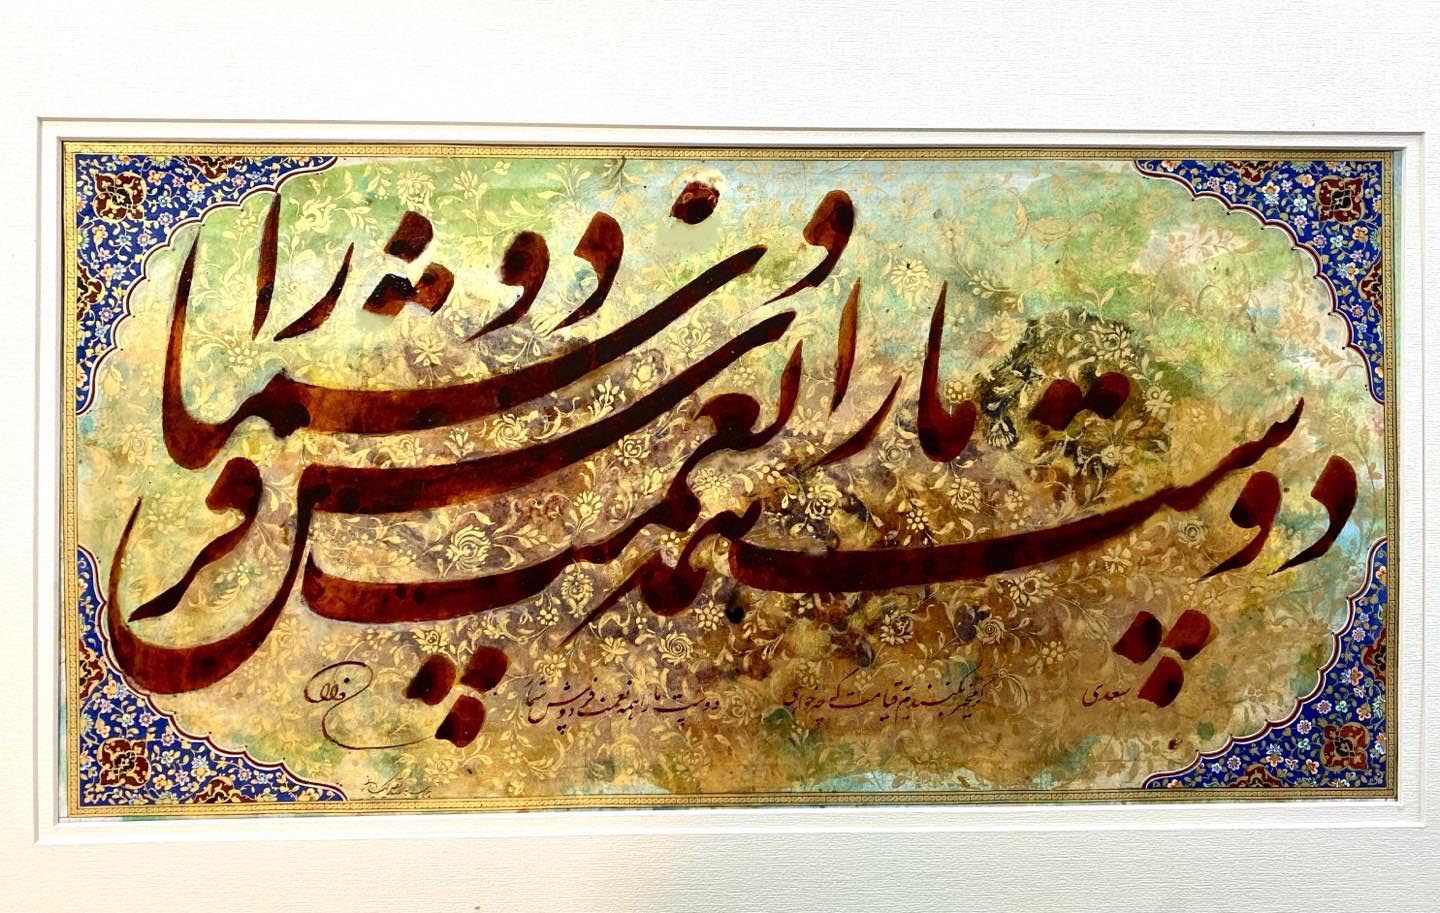 دوست ما را و همه نعمت فردوس شما را
سعدی گر مخیر بکنندم به قیامت که چه خواهی دوست ما را و همه نعمت فردوس شما را